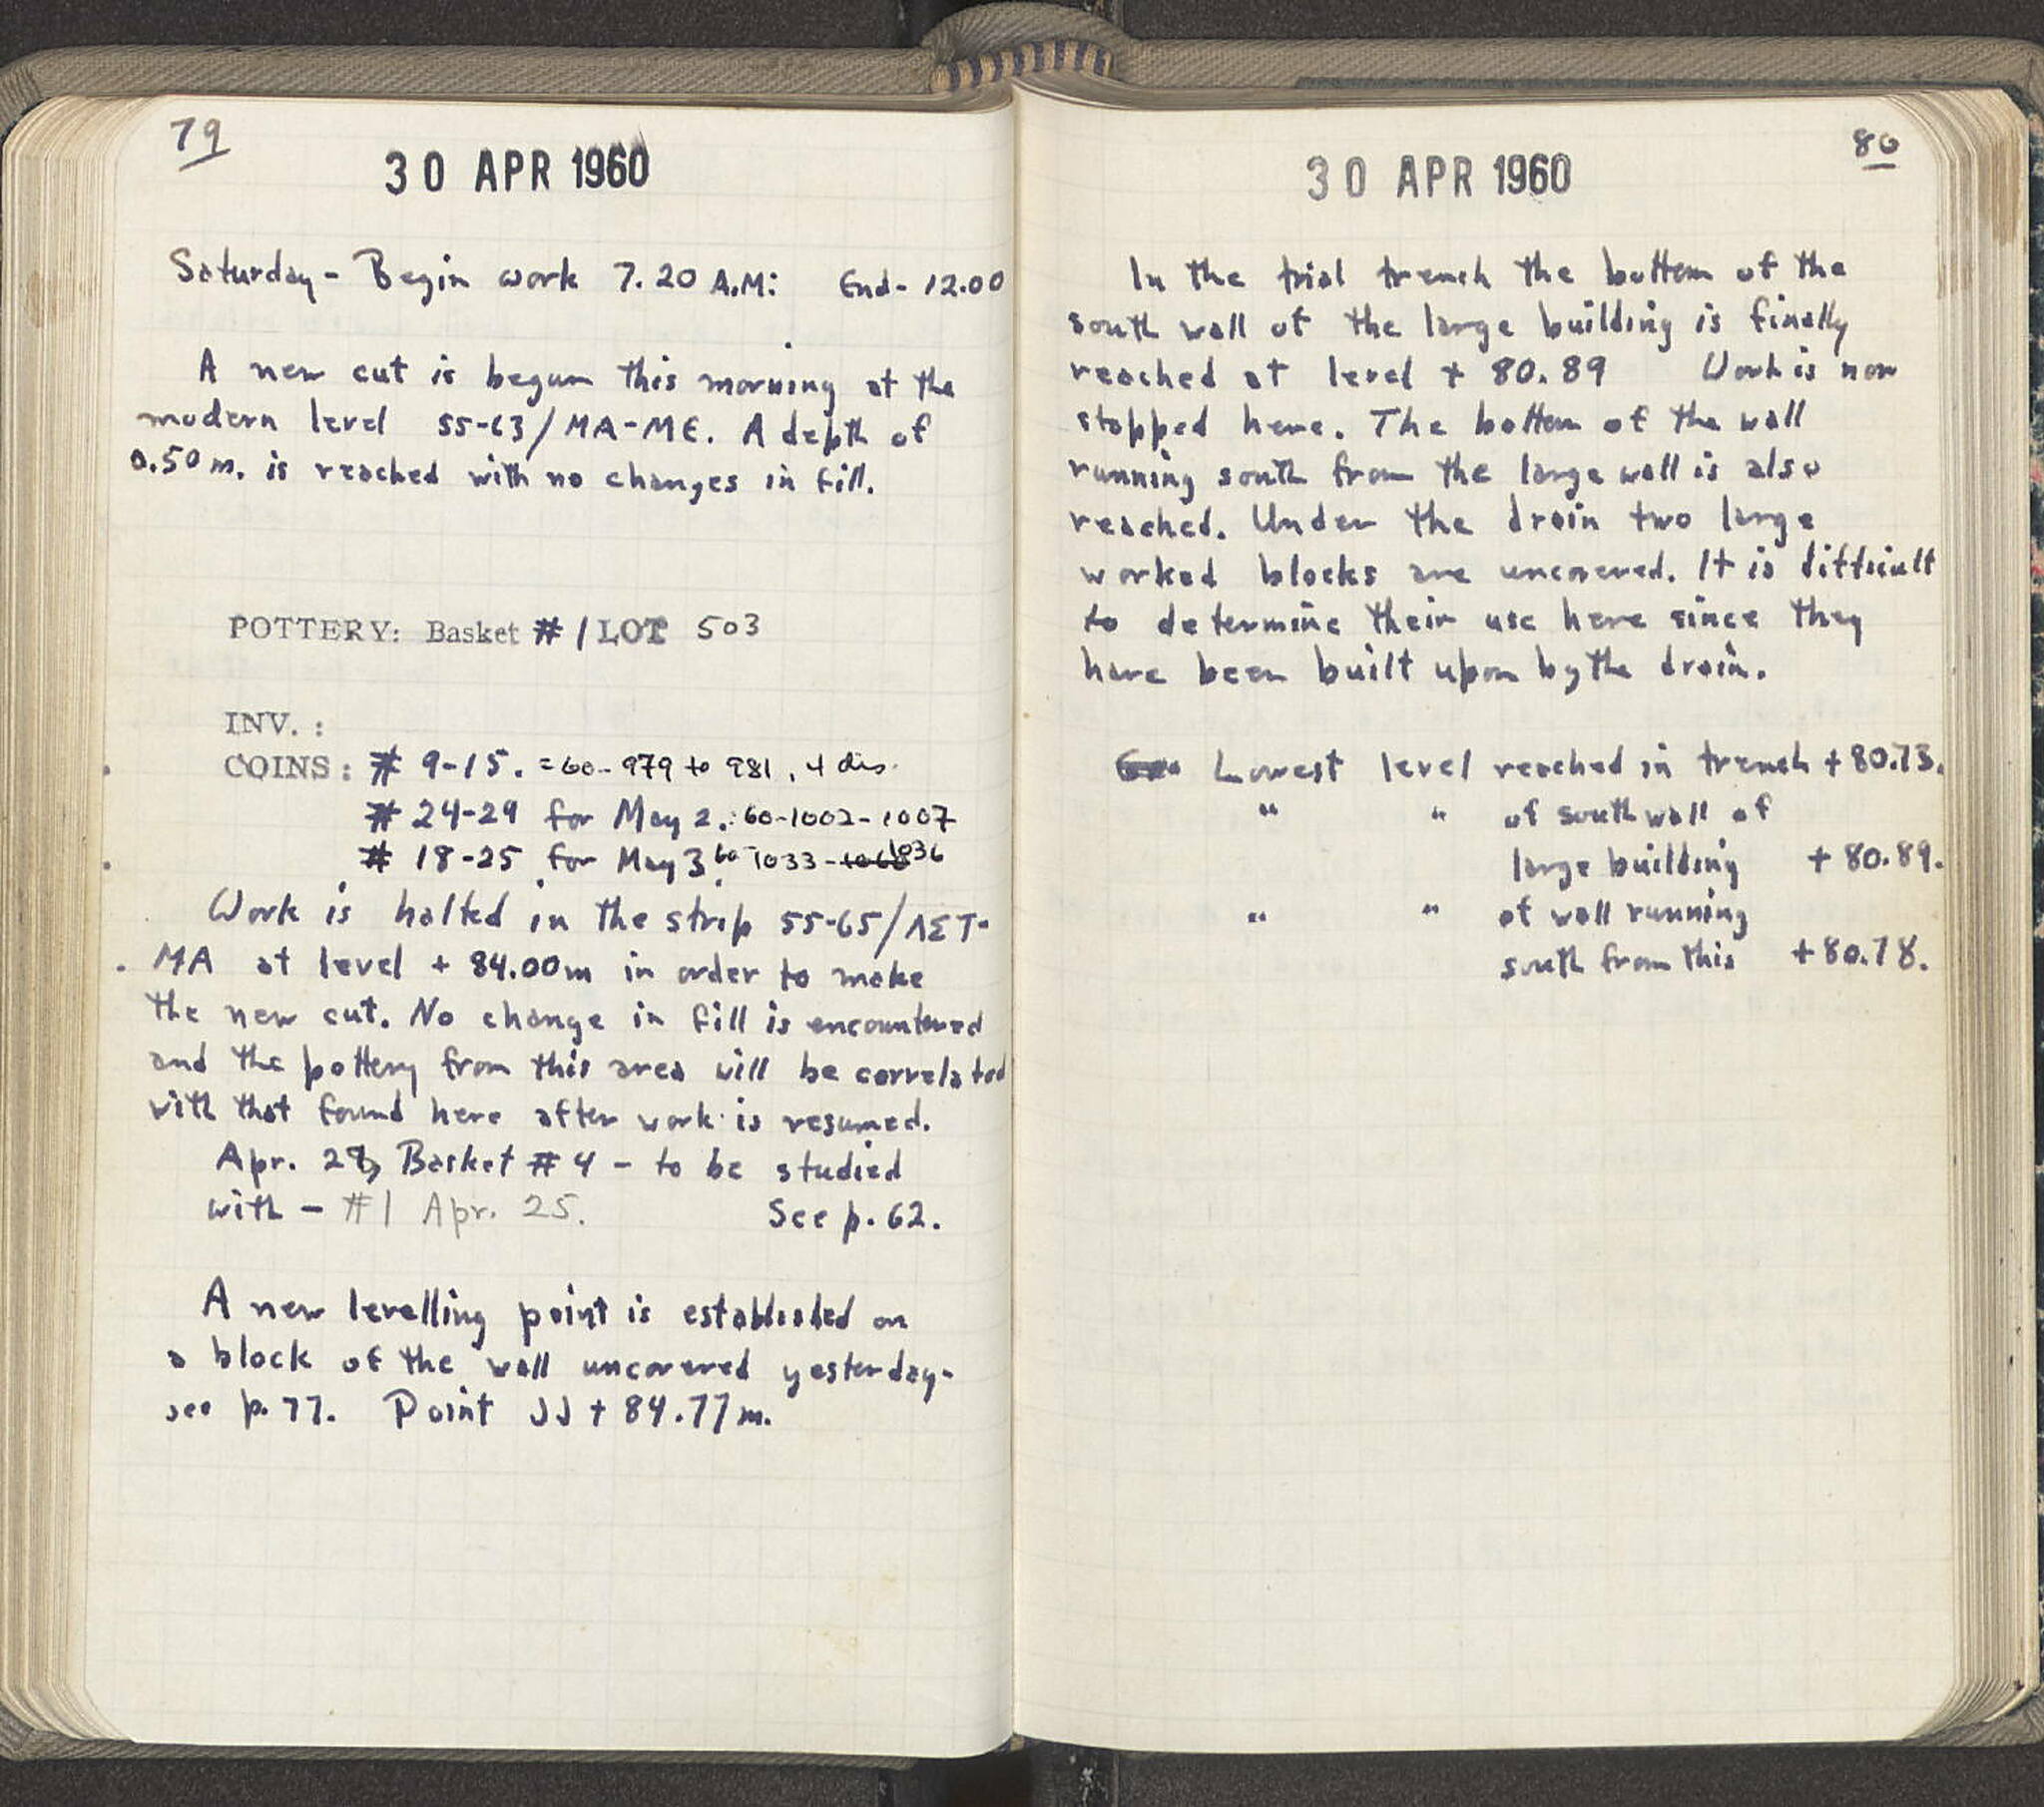 79
30 APR 1960
Saturday - Begin work 7.20 A.M: End - 12.00
A new cut is begun this morning at the
modern level 55-63/MA-ME. A depth of
0.50 m. is reached with no changes in fill.
POTTERY: Basket # 1 LOT 503
INV. :
COINS: # 9-15. = 60-979 to 981, 4 dis.
# 24-29 for May 2.: 60-1002-1007
# 18-25 for May 3: 60-1033-1036
Work is halted in the strip 55-65/ΛΣΤ-
MA at level + 84.00m in order to make
the new cut. No change in fill is encountered
and the pottery from this area will be correlated
with that found here after work is resumed.
Apr. 28, Basket # 4 - to be studied
with - #1 Apr. 25. See p. 62.
A new levelling point is established on
a block of the wall uncovered yesterday-
see p. 77. Point JJ + 84.77 m.
80
30 APR 1960
In the trial trench the bottom of the
south wall of the large building is finally
reached at level + 80.89 Work is now
stopped here. The bottom of the wall
running south from the large wall is also
reached. Under the drain two large
worked blocks are uncovered. It is difficult
to determine their use here since they
have been built upon by the drain.
Lowest level reached in trench + 80.73.
" " of south wall of
large building + 80.89.
" " of wall running
south from this + 80.78.